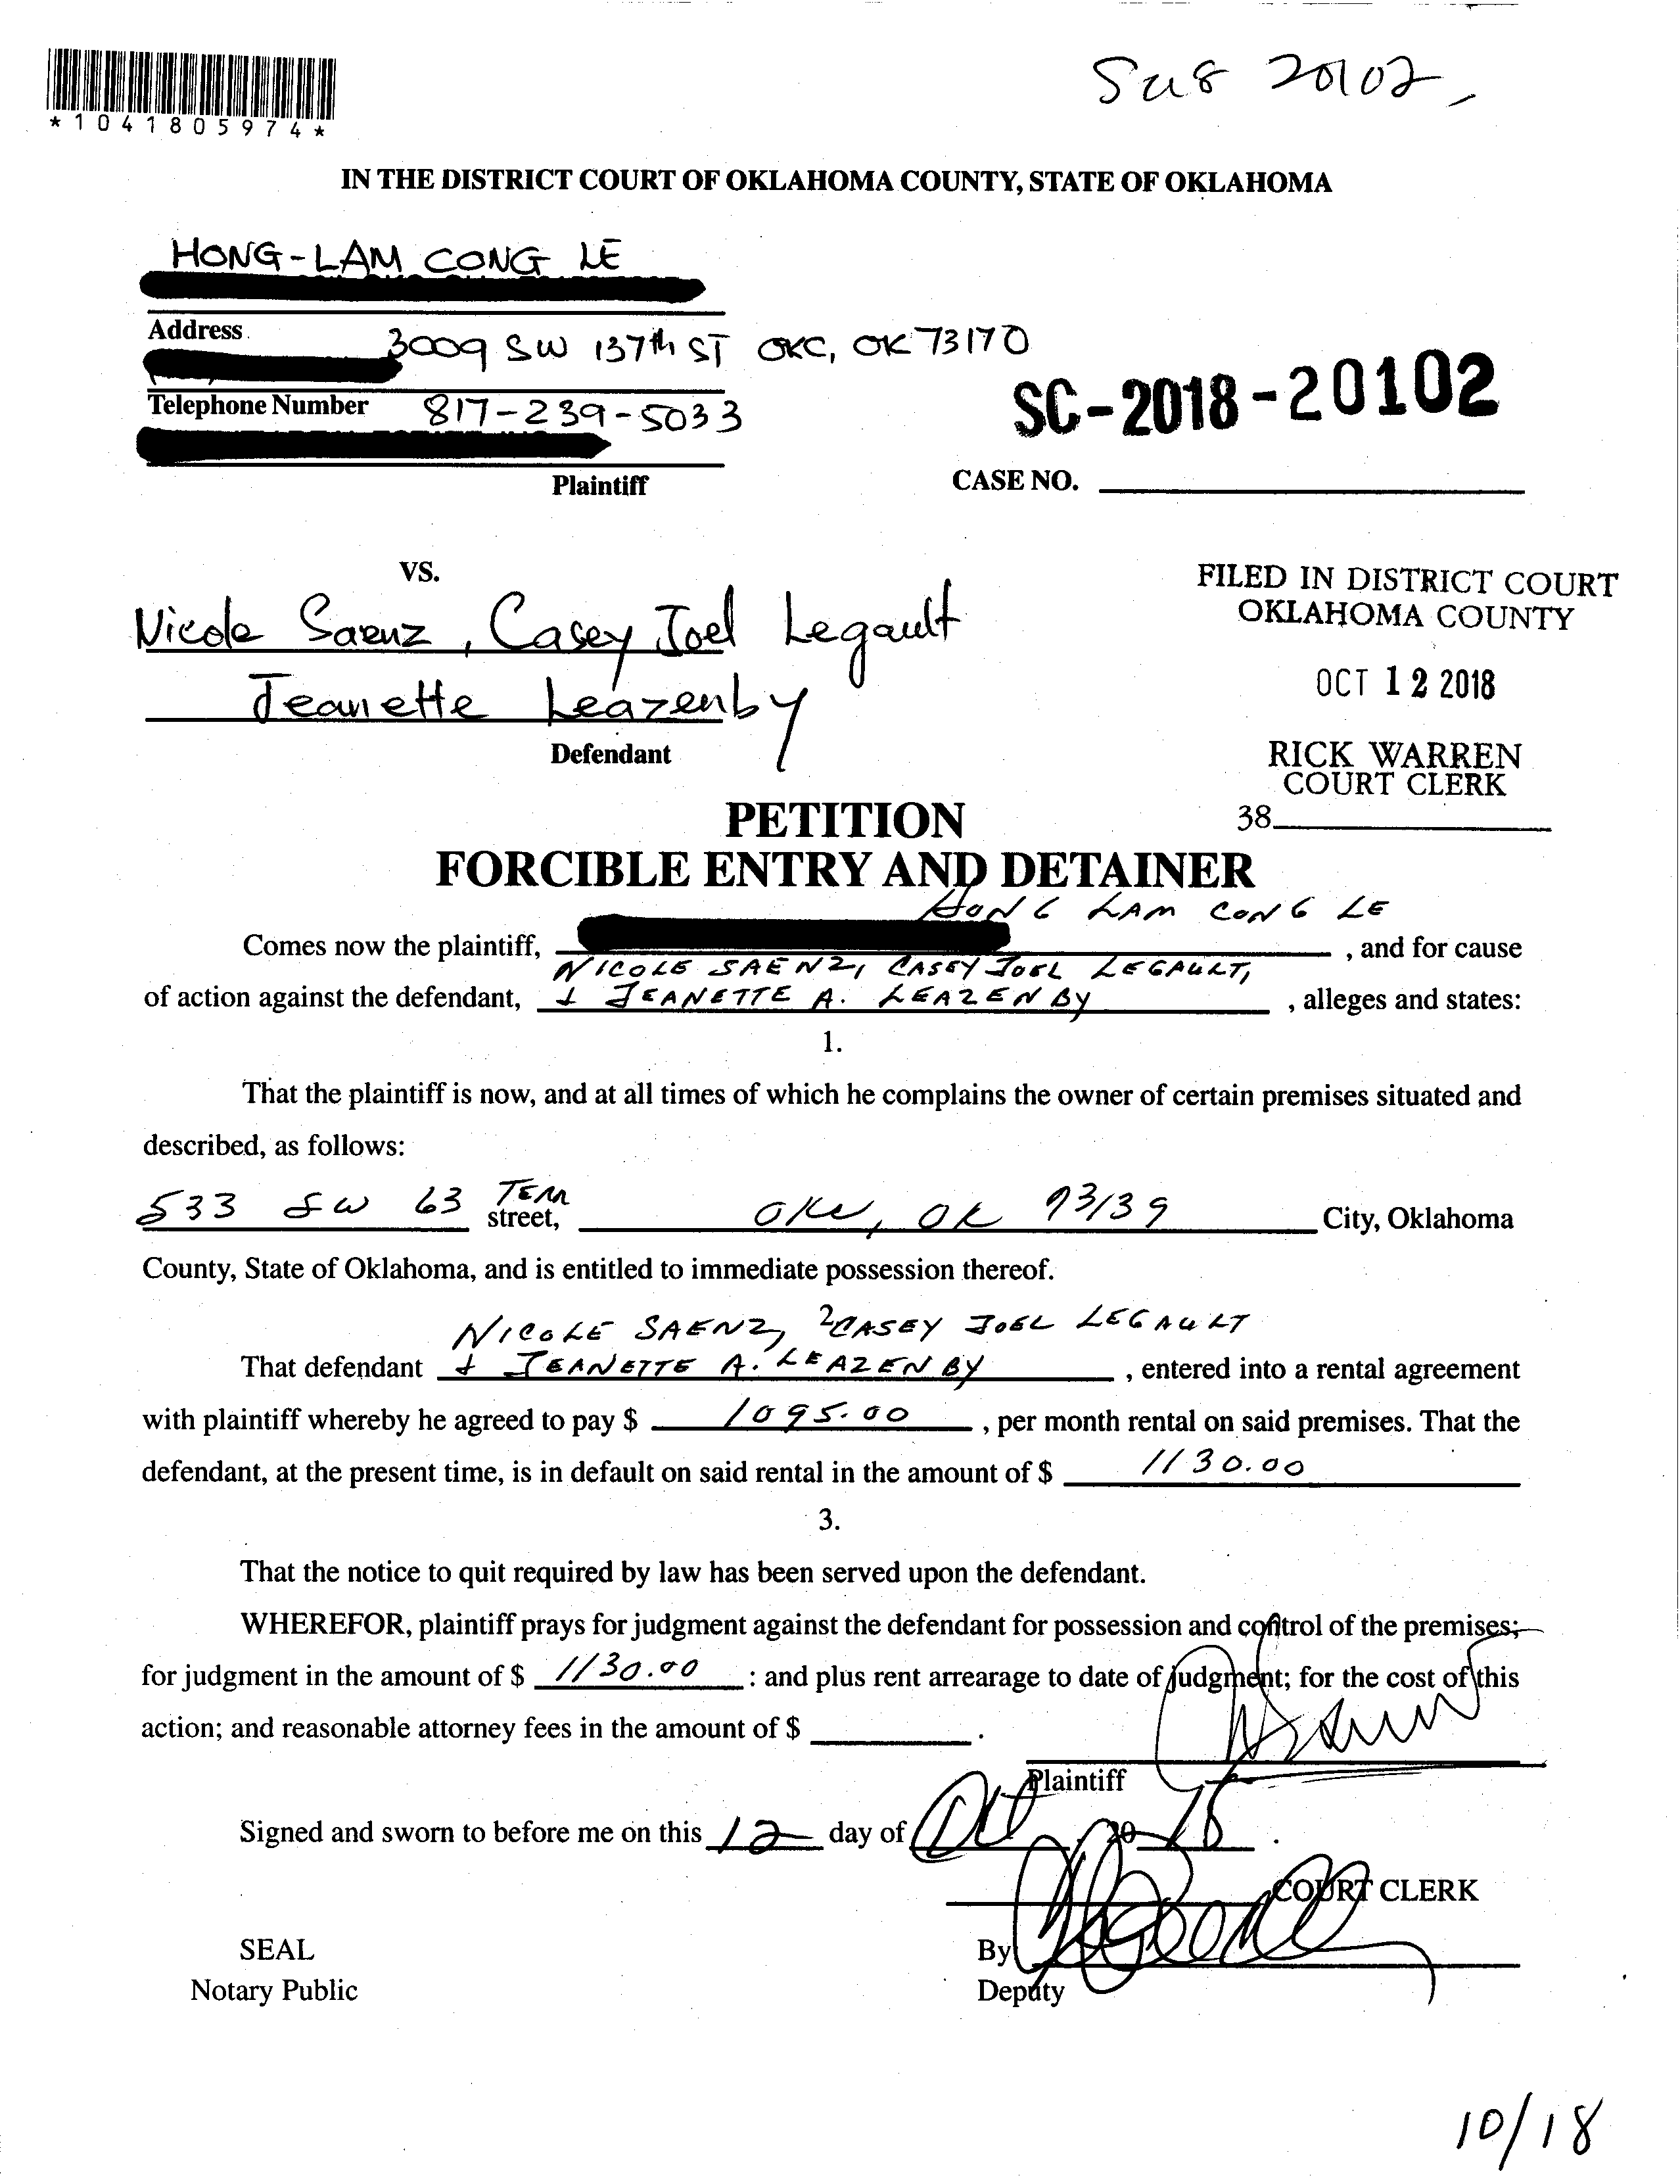 Su8 20102
*1041805974*
IN THE DISTRICT COURT OF OKLAHOMA COUNTY, STATE OF OKLAHOMA
HONG-LAM CONG LE
Address
3009 SW 137th ST OKC, OK 73170
SC-2018-20102
Telephone Number 817-239-5033
Plaintiff
CASE NO.
VS.
FILED IN DISTRICT COURT
OKLAHOMA COUNTY
Nicole Saenz, Casey Joel Legault
Jeanette Leazenby
OCT 12 2018
Defendant
RICK WARREN
COURT CLERK
38
PETITION
FORCIBLE ENTRY AND DETAINER
HONG LAM CONG LE
Comes now the plaintiff, , and for cause
NICOLE SAENZ, CASEY JOEL LEGAULT,
of action against the defendant, & JEANETTE A. LEAZENBY , alleges and states:
1.
That the plaintiff is now, and at all times of which he complains the owner of certain premises situated and
described, as follows:
533 SW 63 TERR street, OKC, OK 73139 City, Oklahoma
County, State of Oklahoma, and is entitled to immediate possession thereof.
2
NICOLE SAENZ, CASEY JOEL LEGAULT
That defendant & JEANETTE A. LEAZENBY , entered into a rental agreement
with plaintiff whereby he agreed to pay $ 1095.00 , per month rental on said premises. That the
defendant, at the present time, is in default on said rental in the amount of $ 1130.00
3.
That the notice to quit required by law has been served upon the defendant.
WHEREFOR, plaintiff prays for judgment against the defendant for possession and control of the premises;
for judgment in the amount of $ 1130.00 : and plus rent arrearage to date of judgment; for the cost of this
action; and reasonable attorney fees in the amount of $ .
Plaintiff
Signed and sworn to before me on this 12 day of Oct , 20 18 .
COURT CLERK
SEAL
By
Notary Public
Deputy
10/18